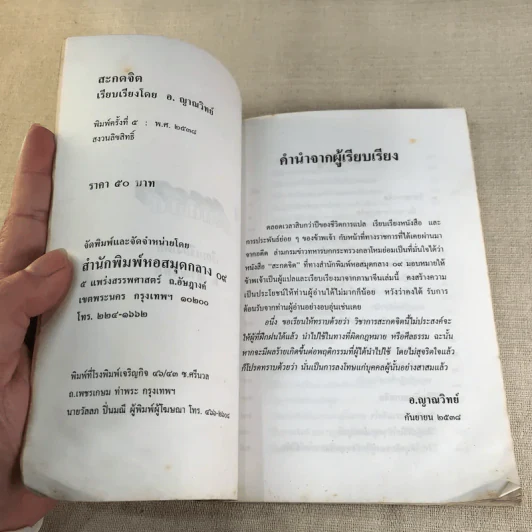 สะกดจิต
เรียบเรียงโดย อ. ญาณวิทย์
พิมพ์ครั้งที่ ๕ : พ.ศ. ๒๕๓๘
สงวนลิขสิทธิ์
ราคา ๕๐ บาท
จัดพิมพ์และจัดจำหน่ายโดย
สำนักพิมพ์หอสมุดกลาง ๐๙
๕ แพร่งสรรพศาสตร์ ถ.อัษฎางค์
เขตพระนคร กรุงเทพฯ ๑๐๒๐๐
โทร. ๒๒๔-๑๖๖๒
พิมพ์ที่โรงพิมพ์เจริญกิจ ๔๖/๔๓ ซ.ศรีนวล
ถ.เพชรเกษม ท่าพระ กรุงเทพฯ
นายวัลลภ ปิ่นมณี ผู้พิมพ์ผู้โฆษณา โทร.
คำนำจากผู้เรียบเรียง
ตลอดเวลาสิบกว่าปีของชีวิตการแปล เรียบเรียงหนังสือ และ
การประพันธ์ย่อย ๆ ของข้าพเจ้า กับหน้าที่ทางราชการที่ได้เคยผ่านมา
จากอดีต ล่ามกรมข่าวทหารบกกระทรวงกลาโหมย่อมเป็นที่มั่นใจได้ว่า
หนังสือ "สะกดจิต" ที่ทางสำนักพิมพ์หอสมุดกลาง ๐๙ มอบหมายให้
ข้าพเจ้าเป็นผู้แปลและเรียบเรียงมาจากภาษาจีนเล่มนี้ คงสร้างความ
เป็นประโยชน์ให้ท่านผู้อ่านได้ไม่มากก็น้อย หวังว่าคงได้ รับการ
ต้อนรับจากท่านผู้อ่านอย่างอบอุ่นเช่นเคย
อนึ่ง ขอเรียนให้ทราบด้วยว่า วิชาการสะกดจิตนี้ไม่ประสงค์จะ
ให้ผู้ที่ฝึกฝนได้แล้ว นำไปใช้ในทางที่ผิดกฎหมาย หรือศีลธรรม ฉะนั้น
หากจะมีผลร้ายเกิดขึ้นต่อพฤติกรรมที่ผู้ได้นำไปใช้ โดยไม่สุจริตใจแล้ว
ก็โปรดทราบด้วยว่า นั่นเป็นการลงโทษแก่บุคคลผู้นั้นอย่างสาสมแล้ว
อ.ญาณวิทย์
กันยายน ๒๕๓๘